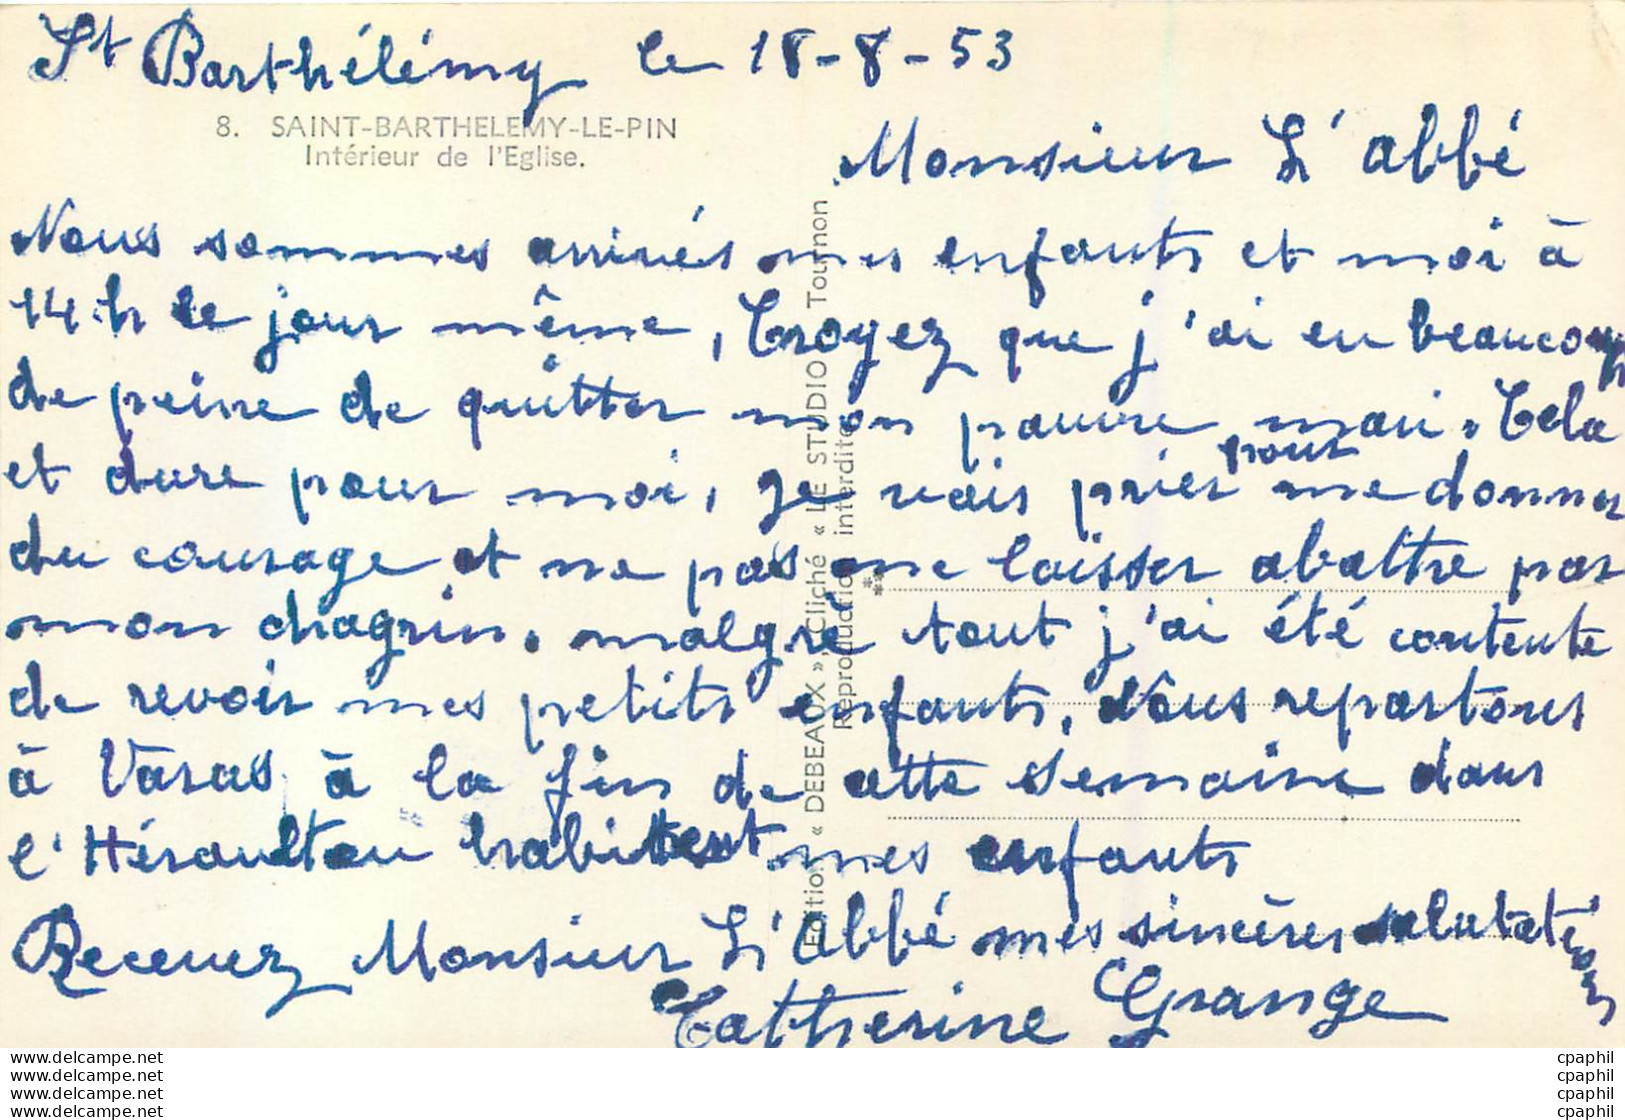 St Barthélémy le 18-8-53
8. SAINT-BARTHELEMY-LE-PIN
Intérieur de l'Eglise.
Monsieur L'abbé
Nous sommes arrivés mes enfants et moi à
14 h le jour même, Croyez que j'ai eu beaucoup
de peine de quitter mon pauvre mari. Cela
et dure pour moi, je vais prier pour me donner
du courage et ne pas me laisser abattre par
mon chagrin. malgrè tout j'ai été contente
de revoir mes petits enfants, Nous repartons
à Varas à la fin de cette semaine dans
l'Hérault ou habitent mes enfants
Recevez Monsieur L'Abbé mes sincères salutations
Catherine Grange
Edition « DEBEAUX », Cliché « LE STUDIO » Tournon
Reproduction interdite
www.delcampe.net
www.delcampe.net
www.delcampe.net
www.delcampe.net
cpaphil
cpaphil
cpaphil
cpaphil